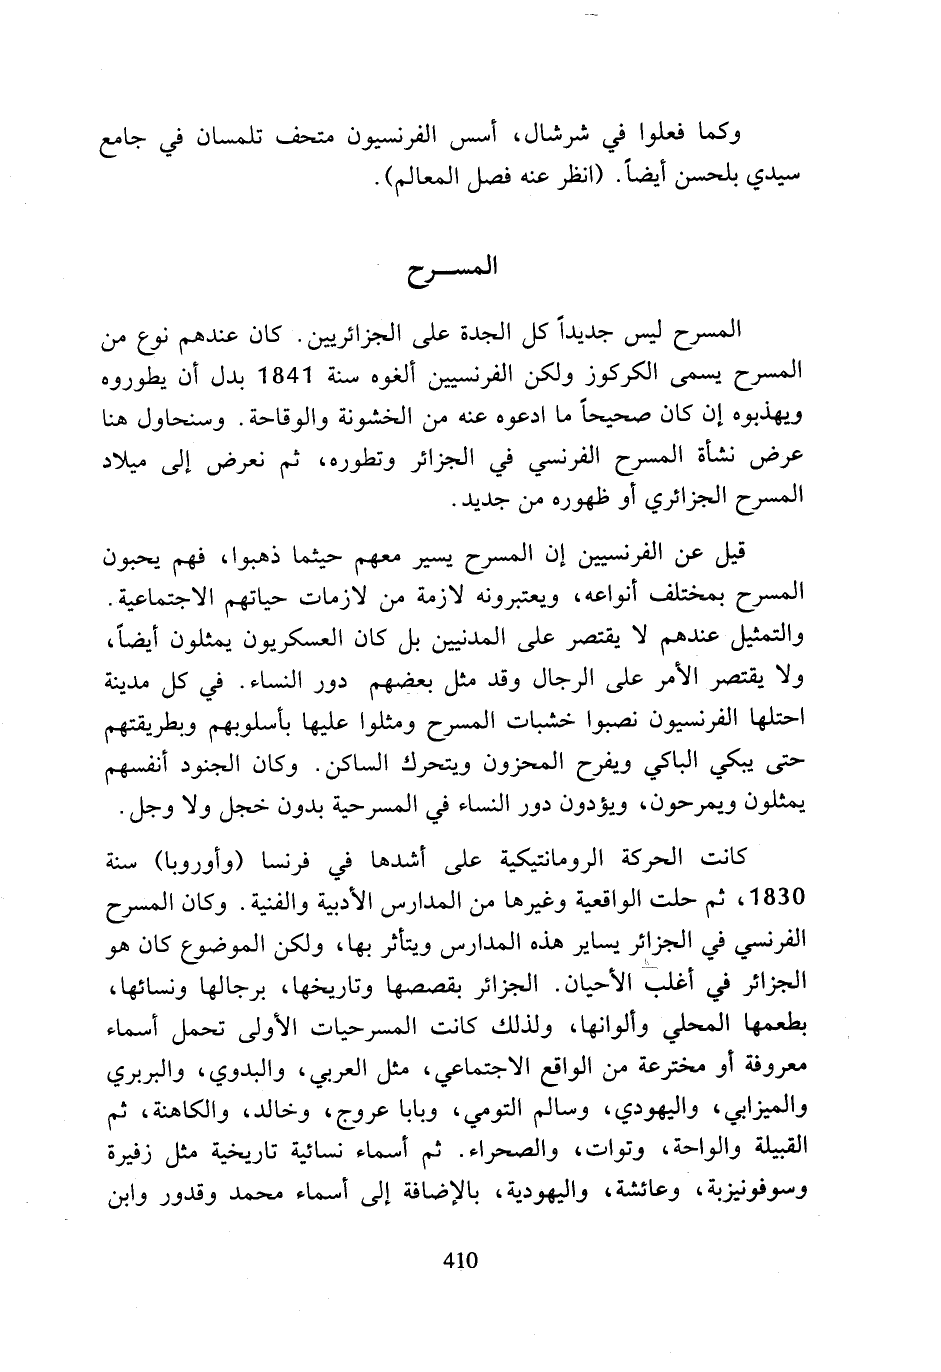 وكما فعلوا في شرشال، أسس الفرنسيون متحف تلمسان في جامع
سيدي بلحسن أيضاً. (انظر عنه فصل المعالم).
المســرح
المسرح ليس جديداً كل الجدة على الجزائريين. كان عندهم نوع من
المسرح يسمى الكركوز ولكن الفرنسيين ألغوه سنة 1841 بدل أن يطوروه
ويهذبوه إن كان صحيحاً ما ادعوه عنه من الخشونة والوقاحة. وسنحاول هنا
عرض نشأة المسرح الفرنسي في الجزائر وتطوره، ثم نعرض إلى ميلاد
المسرح الجزائري أو ظهوره من جديد.
قيل عن الفرنسيين إن المسرح يسير معهم حيثما ذهبوا، فهم يحبون
المسرح بمختلف أنواعه، ويعتبرونه لازمة من لازمات حياتهم الاجتماعية.
والتمثيل عندهم لا يقتصر على المدنيين بل كان العسكريون يمثلون أيضاً،
ولا يقتصر الأمر على الرجال وقد مثل بعضهم دور النساء. في كل مدينة
احتلها الفرنسيون نصبوا خشبات المسرح ومثلوا عليها بأسلوبهم وبطريقتهم
حتى يبكي الباكي ويفرح المحزون ويتحرك الساكن. وكان الجنود أنفسهم
يمثلون ويمرحون، ويؤدون دور النساء في المسرحية بدون خجل ولا وجل.
كانت الحركة الرومانتيكية على أشدها في فرنسا (وأوروبا) سنة
1830، ثم حلت الواقعية وغيرها من المدارس الأدبية والفنية. وكان المسرح
الفرنسي في الجزائر يساير هذه المدارس ويتأثر بها، ولكن الموضوع كان هو
الجزائر في أغلب الأحيان. الجزائر بقصصها وتاريخها، برجالها ونسائها،
بطعمها المحلي وألوانها، ولذلك كانت المسرحيات الأولى تحمل أسماء
معروفة أو مخترعة من الواقع الاجتماعي، مثل العربي، والبدوي، والبربري
والميزابي، واليهودي، وسالم التومي، وبابا عروج، وخالد، والكاهنة، ثم
القبيلة والواحة، وتوات، والصحراء. ثم أسماء نسائية تاريخية مثل زفيرة
وسوفونيزبة، وعائشة، واليهودية، بالإضافة إلى أسماء محمد وقدور وابن
410